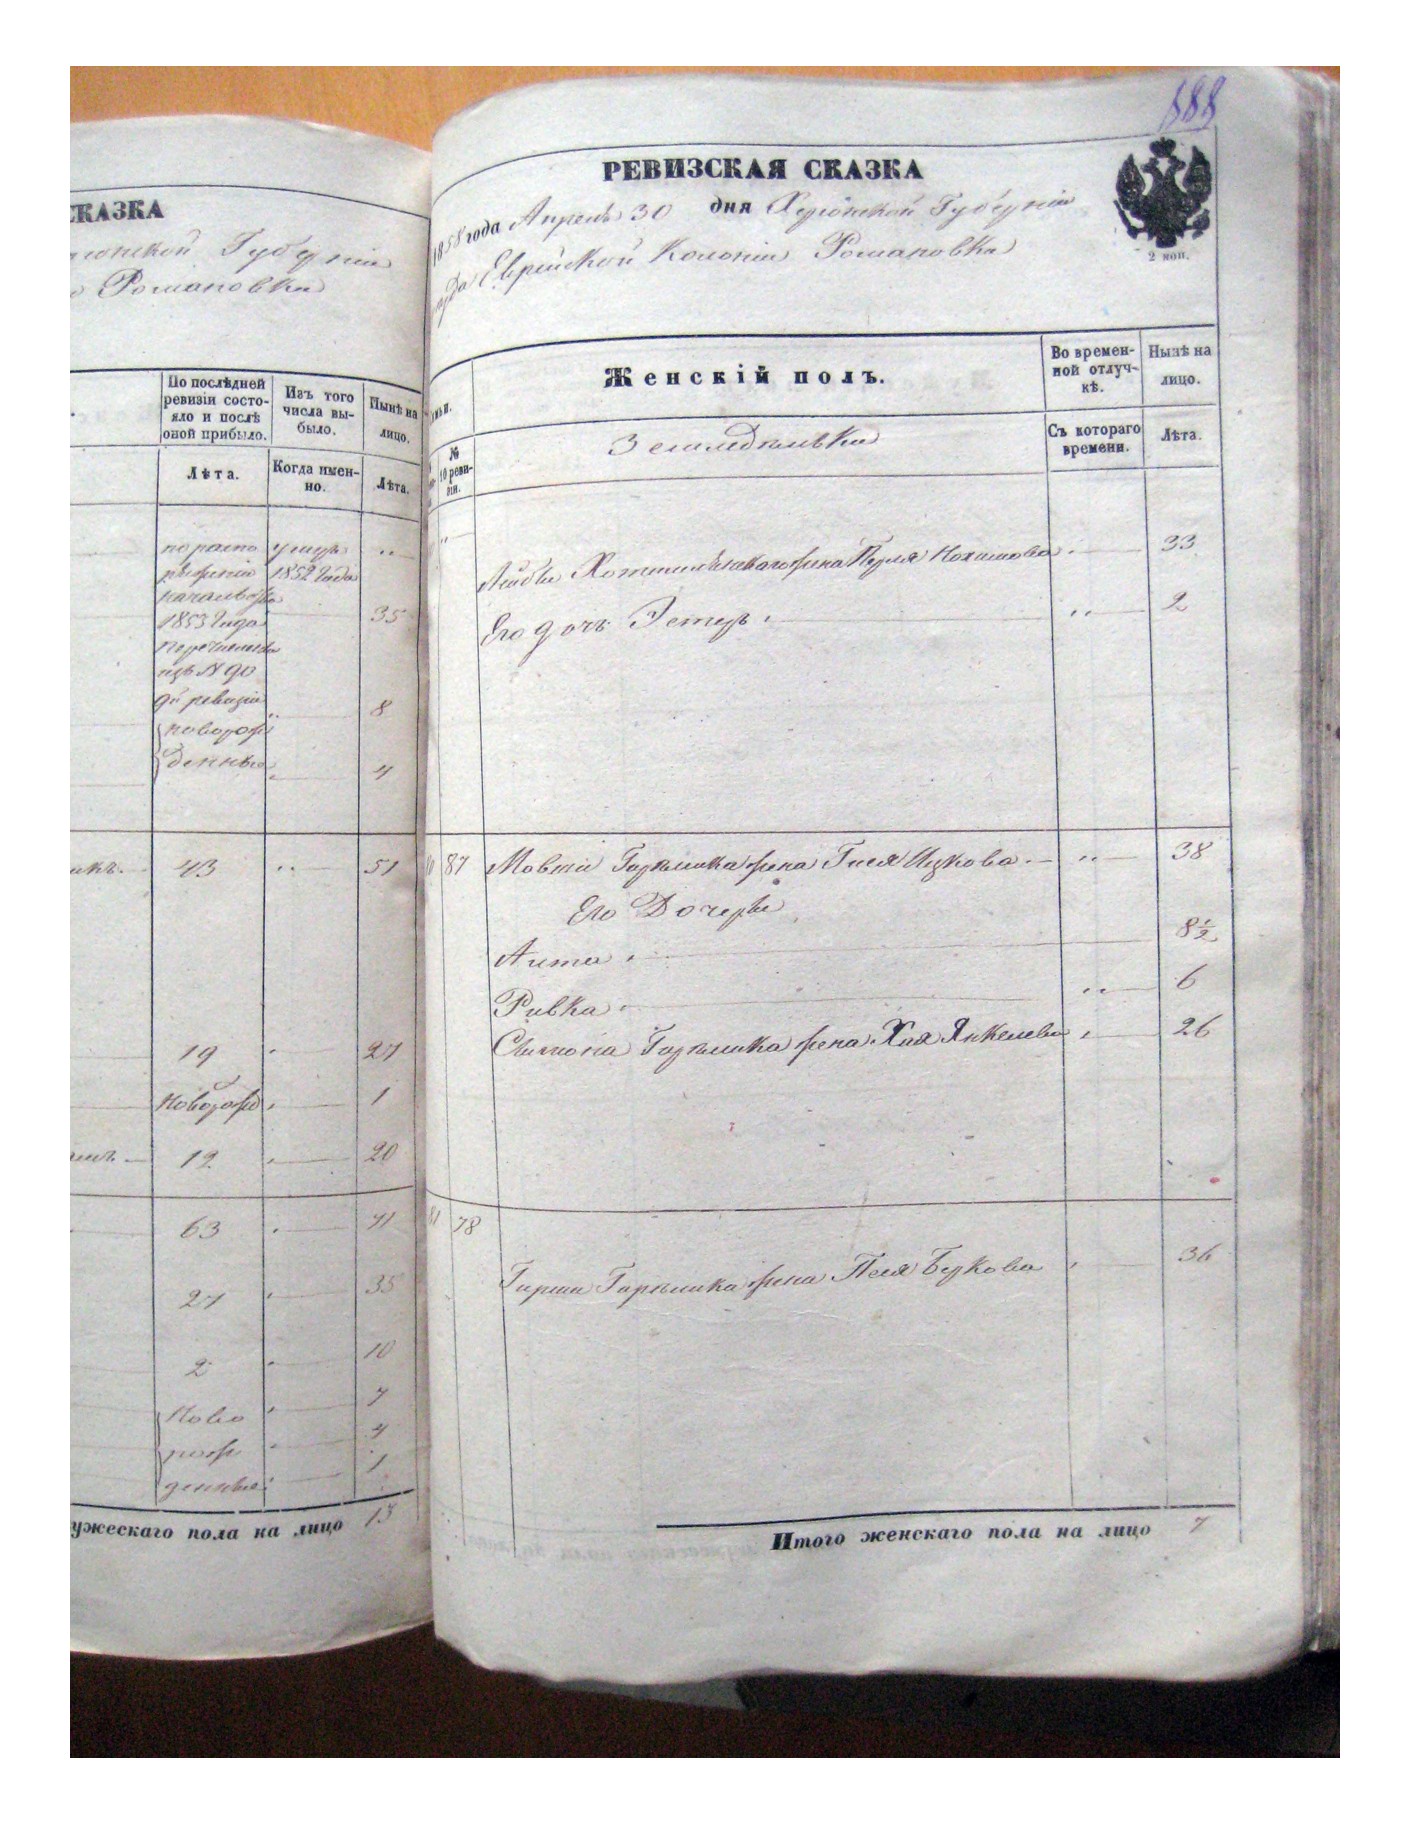 СКАЗКА
Губерніи
Романовка
По послѣдней
ревизіи состо-
яло и послѣ
оной прибыло.
Изъ того
числа вы-
было.
Нынѣ на
лицо.
Лѣта.
Когда имен-
но.
Лѣта.
по распо
ряженію
начальства
1853 года
перечисленъ
изъ № 90
9й ревизіи
умеръ
1852 года
35
8
новорож
денные
4
43
51
19
27
Новорож
1
12
20
63
71
27
35
2
10
Ново
рож
денные
7
4
1
ужескаго пола на лицо 13
188
РЕВИЗСКАЯ СКАЗКА
1858 года Апреля 30 дня Херсонской Губерніи
Еврейской Колоніи Романовка
2 коп.
Женскій полъ.
Во времен-
ной отлуч-
кѣ.
Нынѣ на
лицо.
№
10 реви-
зіи.
Земледѣльвка
Съ котораго
времени.
Лѣта.
Лейбы жена Перля 33
Его дочь Эстеръ 2
87 Мовши Гарѣлика жена Гися Ицкова 38
Его Дочери
Анта 8½
Ривка 6
Симона Гарѣлика жена Хая Янкелева 26
81 78
Гирши Гарѣлика жена Песя Беркова 36
Итого женскаго пола на лицо 7